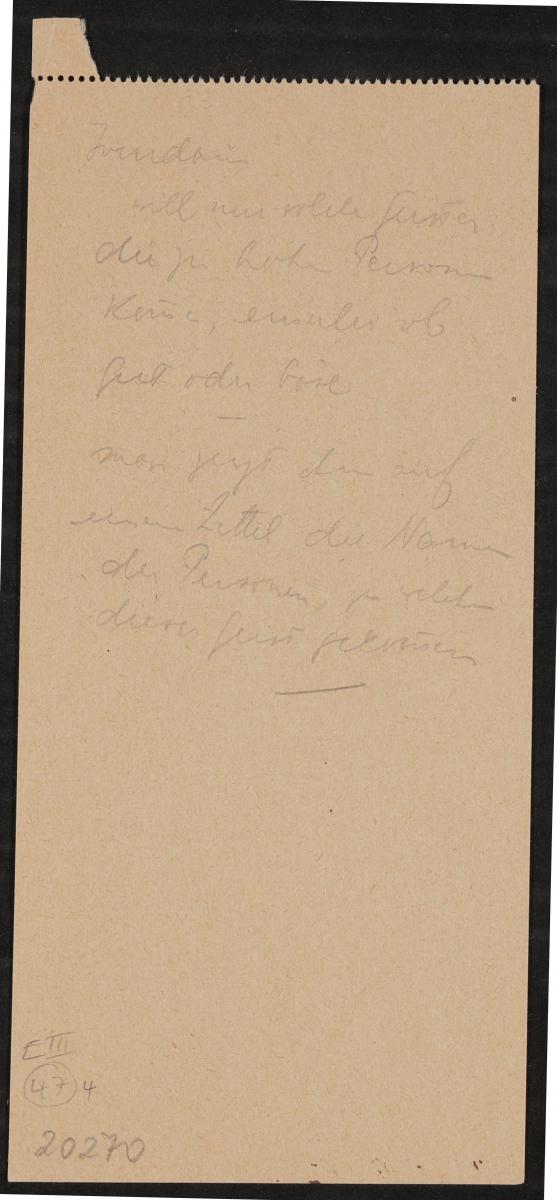 Jourdain
will nur solche Geister
die zu hohen Personen
Komē, einerlei ob
gut oder böse
—
man zeigt ihm auf
einem Zettel die Namen
der Personen, zu welchen
dieser Geist gekom̄en
E III
47 4
20270